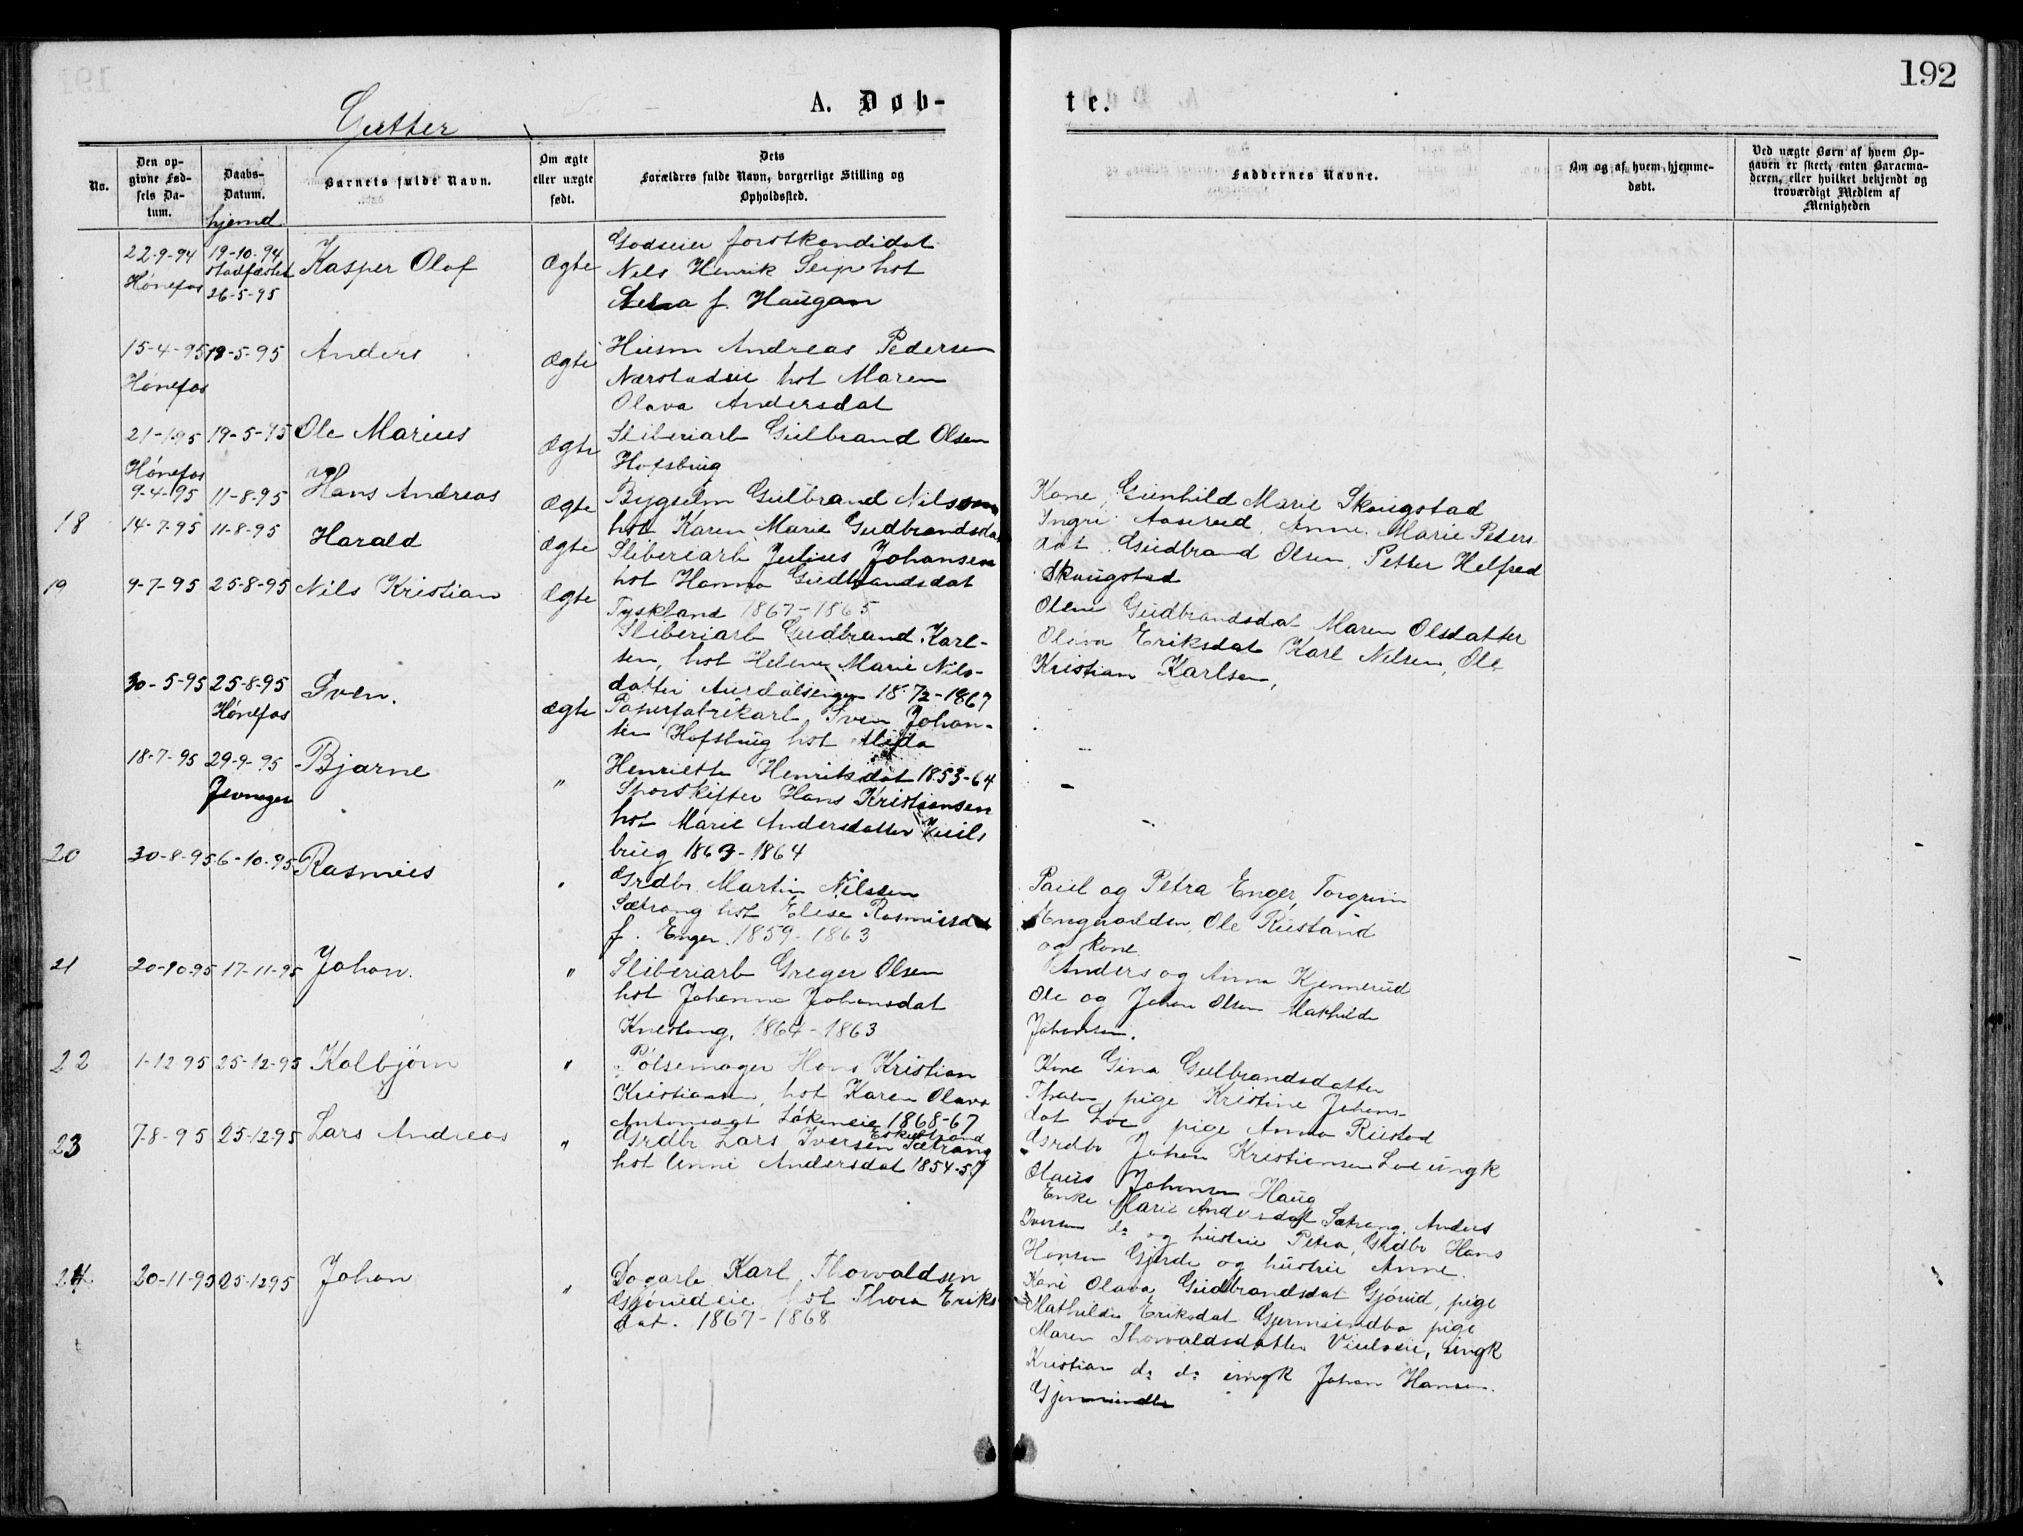 192
Gutter
A. Døb-
te.
No.
Den op-
givne Fød-
sels Da-
tum.
Daabs-
Datum.
Barnets fulde Navn.
Om ægte
eller uægte
født.
Dets
Forældres fulde Navn, borgerlige Stilling og
Opholdssted.
Faddernes Navne.
Om og af hvem hjemme-
døbt.
Ved uægte Børn af hvem Op-
gaven er skeet, enten Barnema-
deren, eller hvilket bekjendt og
troværdigt Medlem af
Menigheden
hjemd
22-9-94
Hønefos
19-10-94
stadfæstet
26-5-95
Kasper Olaf
Ægte
Godseier forstkandidat
Nils Henrik Seip hot
f. Haugan
15-4-95
Hønefos
19-5-95
Anders
Ægte
Husm Andreas Pedersen
Nærstadeie hot Maren
Olava Andersdat
21-1-95
Hønefos
19-5-95
Ole Marius
Ægte
Sliberiarb Gulbrand Olsen
Hofsbrug
9-4-95
11-8-95
Hans Andreas
Ægte
Bygselm Gulbrand Nilssen
hot Karen Marie Gudbrandsdat
18
14-7-95
11-8-95
Harald
Ægte
Sliberiarb Julius Johansen
hot Hanna Gudbrandsdat
Tyskland 1867-1865
19
9-7-95
25-8-95
Nils Kristian
Ægte
Sliberiarb Gudbrand Karl-
sen, hot Helene Marie Nils-
datter 1872-1867
30-5-95
25-8-95
Hønefos
Sven.
ægte
Papirfabrikarb Sven Johan-
sen Hofsbrug hot Alida
Henriette Henriksdat 1853-64
18-7-95
29-9-95
Jevnager
Bjarne
"
Sporskifter Hans Kristiansen
hot Marie Andersdatter
brug 1863-1864
20
30-8-95
6-10-95
Rasmus
"
Grdbr. Martin Nilssen
Sætrang hot Elise Rasmusdat
f. Enger 1859-1863
21
20-10-95
17-11-95
Johan.
"
Sliberiarb Greger Olsen
hot Johanne Johansdat
Knestang, 1864-1863
22
1-12 95
25-12-95
Kolbjørn
"
Pølsemager Hans Kristian
Kristiansen, hot Karen Olava
Antonsdat Løkeneie 1868-67
23
7-8-95
25-12-95
Lars Andreas
"
Grdbr Lars Iversen Sætrang
hot Anne Andersdat 1854-57
24
20-11-95
25-12-95
Johan
"
Dagarb Karl Thorvaldsen
Gjørudeie hot Thora Eriks
dat. 1867-1868
Kone Gunhild Marie Skaugstad
Ingri Aaserud, Anne Marie Peters
dat Gudbrand Olsen, Petter Helfred
Skaugstad
Oline Gudbrandsdat Maren Olsdatter
Olava Eriksdat Karl Nilsen, Ole
Kristian Karlsen,
Paul og Petra Enger, Torgrim
Engnolden, Ole Rustand
og kone
Anders og Anna Kjennerud
Ole og Johan Olsen Mathilde
Johansen.
Kone Gina Gulbrandsdatter
pige Kristine Johans-
dat Loe pige Anna Rustad
Grdbr Johan Kristiansen Loe ungk
Olaus Johansen Haug
Enke Marie Andersdat Sætrang, Anders
Iversen do og hustru Petra, Grdbr Hans
Hansen Gjerde og hustru Anne.
Kone Olava Gudbrandsdat Gjørud, pige
Mathilde Eriksdat Gjermundbo pige
Maren Thorvaldsdatter Viuleie, ungk
Kristian do do ungk Johan Hansen
Gjermundbo